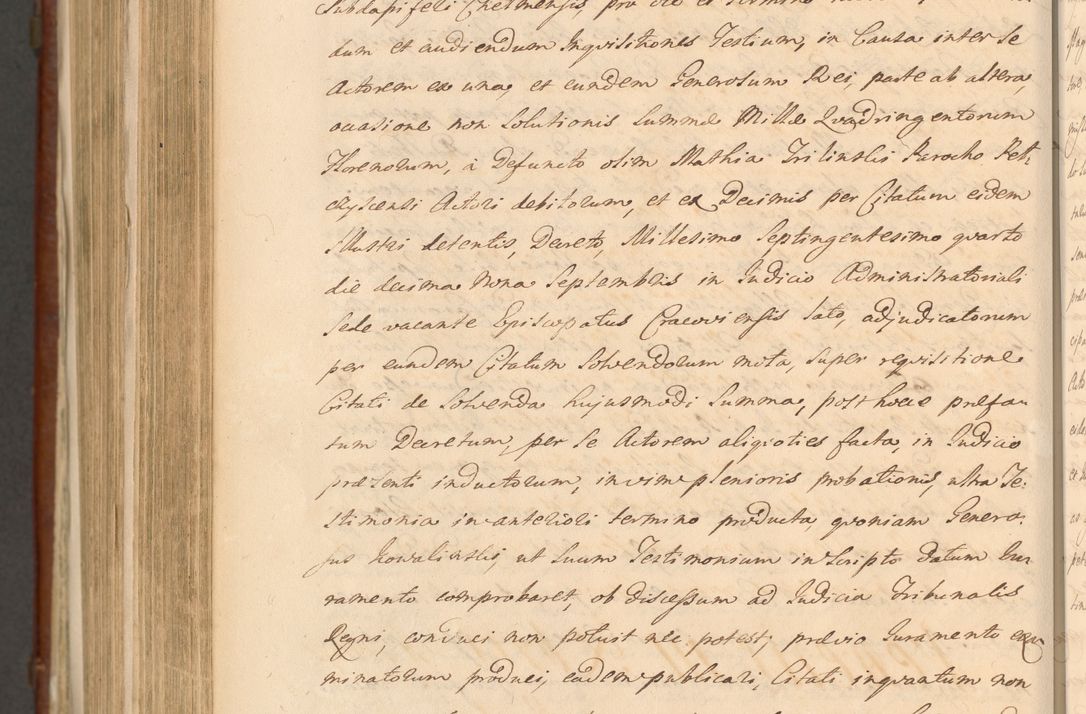 Subdapiferi Chelmensis, pro die et termino
dum et audiendum Inqvisitiones Testium, in Causa inter se
Actorem ex una, et eundem Generosum Rei, parte ab altera,
occasione non Solutionis Summæ Mille Qvadringentorum
Florenorum, à Defuncto olim Mathia Trilinski Parocho Pet-
czyscensi Actori debitorum, et ex Decimis per Citatum eidem
Illustri detentis, Decreto, Millesimo Septingentesimo quarto
die decima Nona Septembris in Iudicio Administratoriali
Sede vacante Episcopatus Cracoviensis lato, adjudicatorum
per eundem Citatum Solvendorum mota, super reqvisitione
Citati de Solvenda hujusmodi Summa, post hocce præfa-
tum Decretum, per Se Actorem aliqvoties facta, in Iudicio
præsenti inductorum, in vim plenioris probationis, ultra Te-
stimonia in anteriori termino producta, qvoniam Genero-
sus Kowalinski, ut Suum Testimonium in Scripto datum Iu-
ramento comprobaret, ob discessum ad Iudicia Tribunalis
Regni, conduci non potuit nec potest, prævio Iuramento exa-
minatorum produci, eadem publicari, Citati inqvantum non